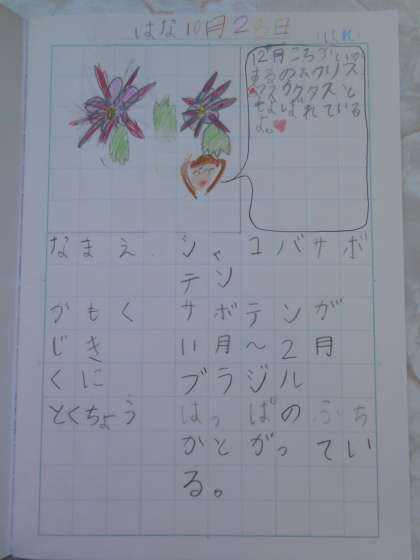 はな10月23日
(はれ)
12月ころにいか
するのでクリス
マスカクタスと
もよばれている
よ。
なまえ シャコバサボ
テン
かもく サボテンが
じき 11月～2月
くに ブラジル
とくちょう はっぱのふち
がとがってい
る。